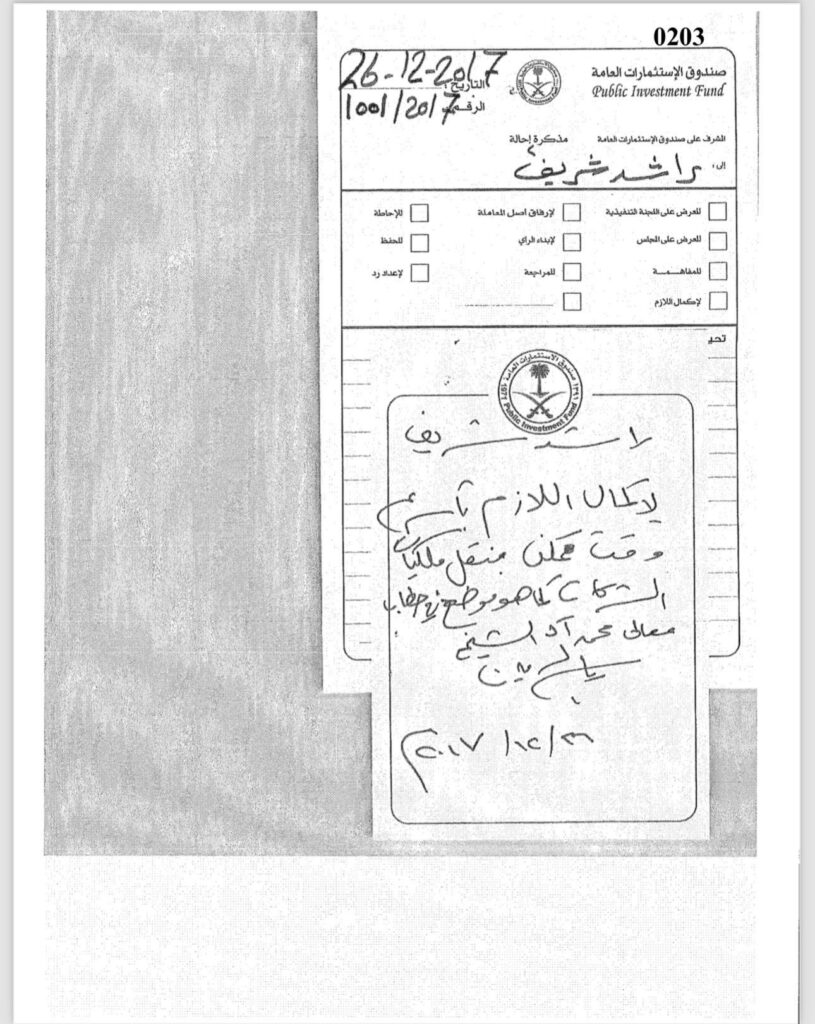 0203
صندوق الإستثمارات العامة
Public Investment Fund
التاريخ : 26-12-2017
الرقم : 1001/2017
المشرف على صندوق الإستثمارات العامة
مذكرة إحالة
إلى : راشد شريف
للعرض على اللجنة التنفيذية
لإرفاق أصل المعاملة
للإحاطة
للعرض على المجلس
لإبداء الرأي
للحفظ
للمفاهمة
للمراجعة
لإعداد رد
لإكمال اللازم
تحيـ
صندوق الاستثمارات العامة
Public Investment Fund
راشد شريف
لإكمال اللازم بأسرع
وقت ممكن بنقل ملكيات
الشركات كما هو موضح في خطاب
معالي محمد آل الشيخ
ياسر
٢٦/١٢/٢٠١٧م